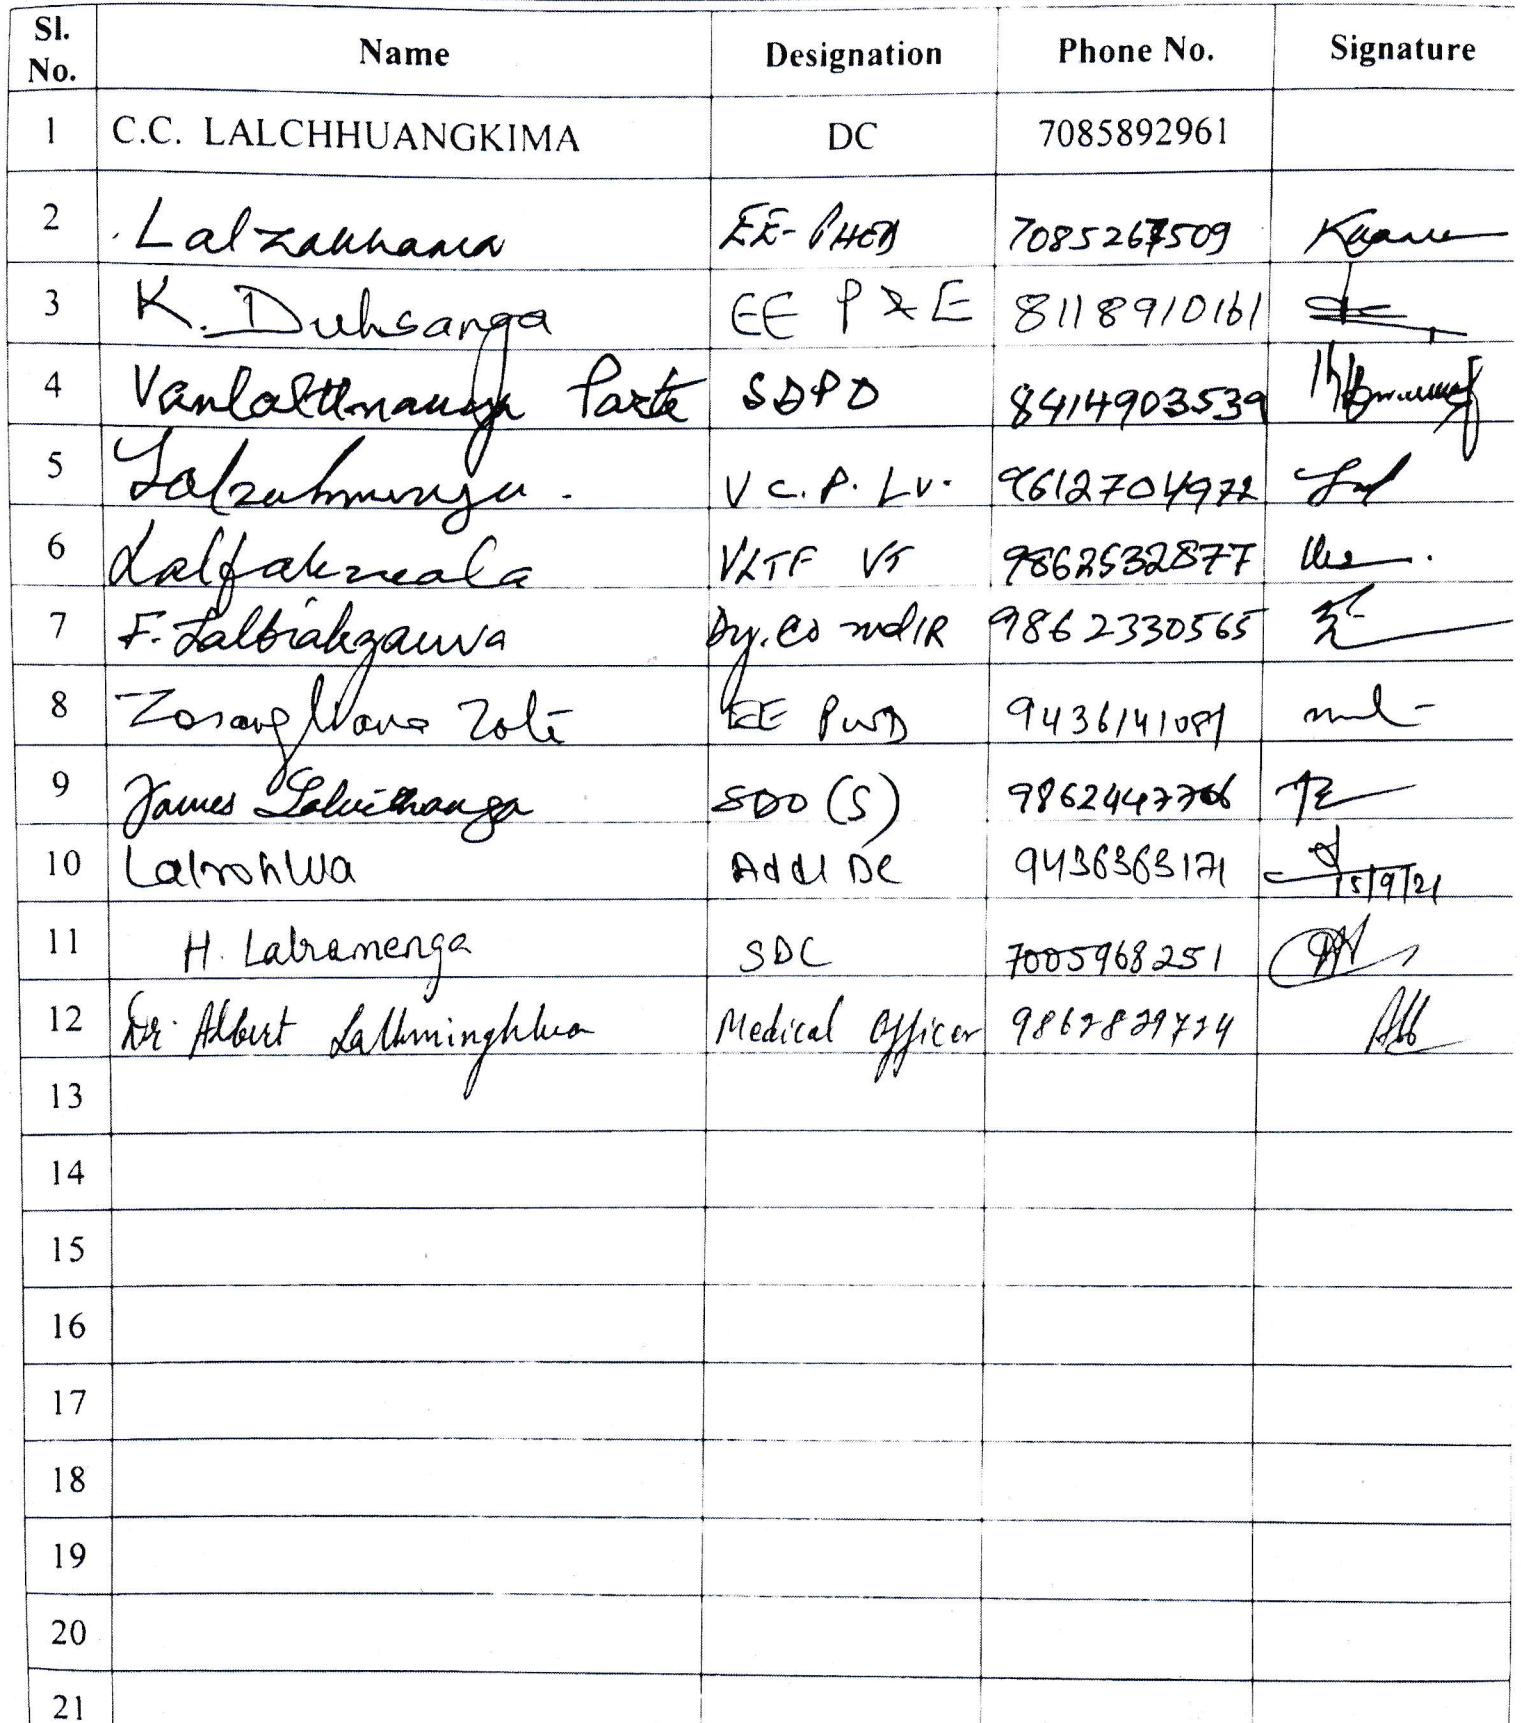 Sl. No. Name Designation Phone No. Signature
1 C.C. LALCHHUANGKIMA DC 7085892961
2 Lalzakhama EE-PHED 7085267509
3 K. Duhsanga EE P & E 8118910161
4 SDPO 8414903539
5 V C.P. LV. 9612704972
6 Lalfakzuala VLTF VT 9862532877
7 F. Lalbiakzauva Dy. 9862330565
8 Zosangliana Zote EE PWD 9436141081
9 James SDO (S)
10 Lalrohlua Addl DC 9436363171 15/9/21
11 H. Lalramenga SDC 7005968251
12 Dr. Albert Medical Officer 9862829724
13
14
15
16
17
18
19
20
21